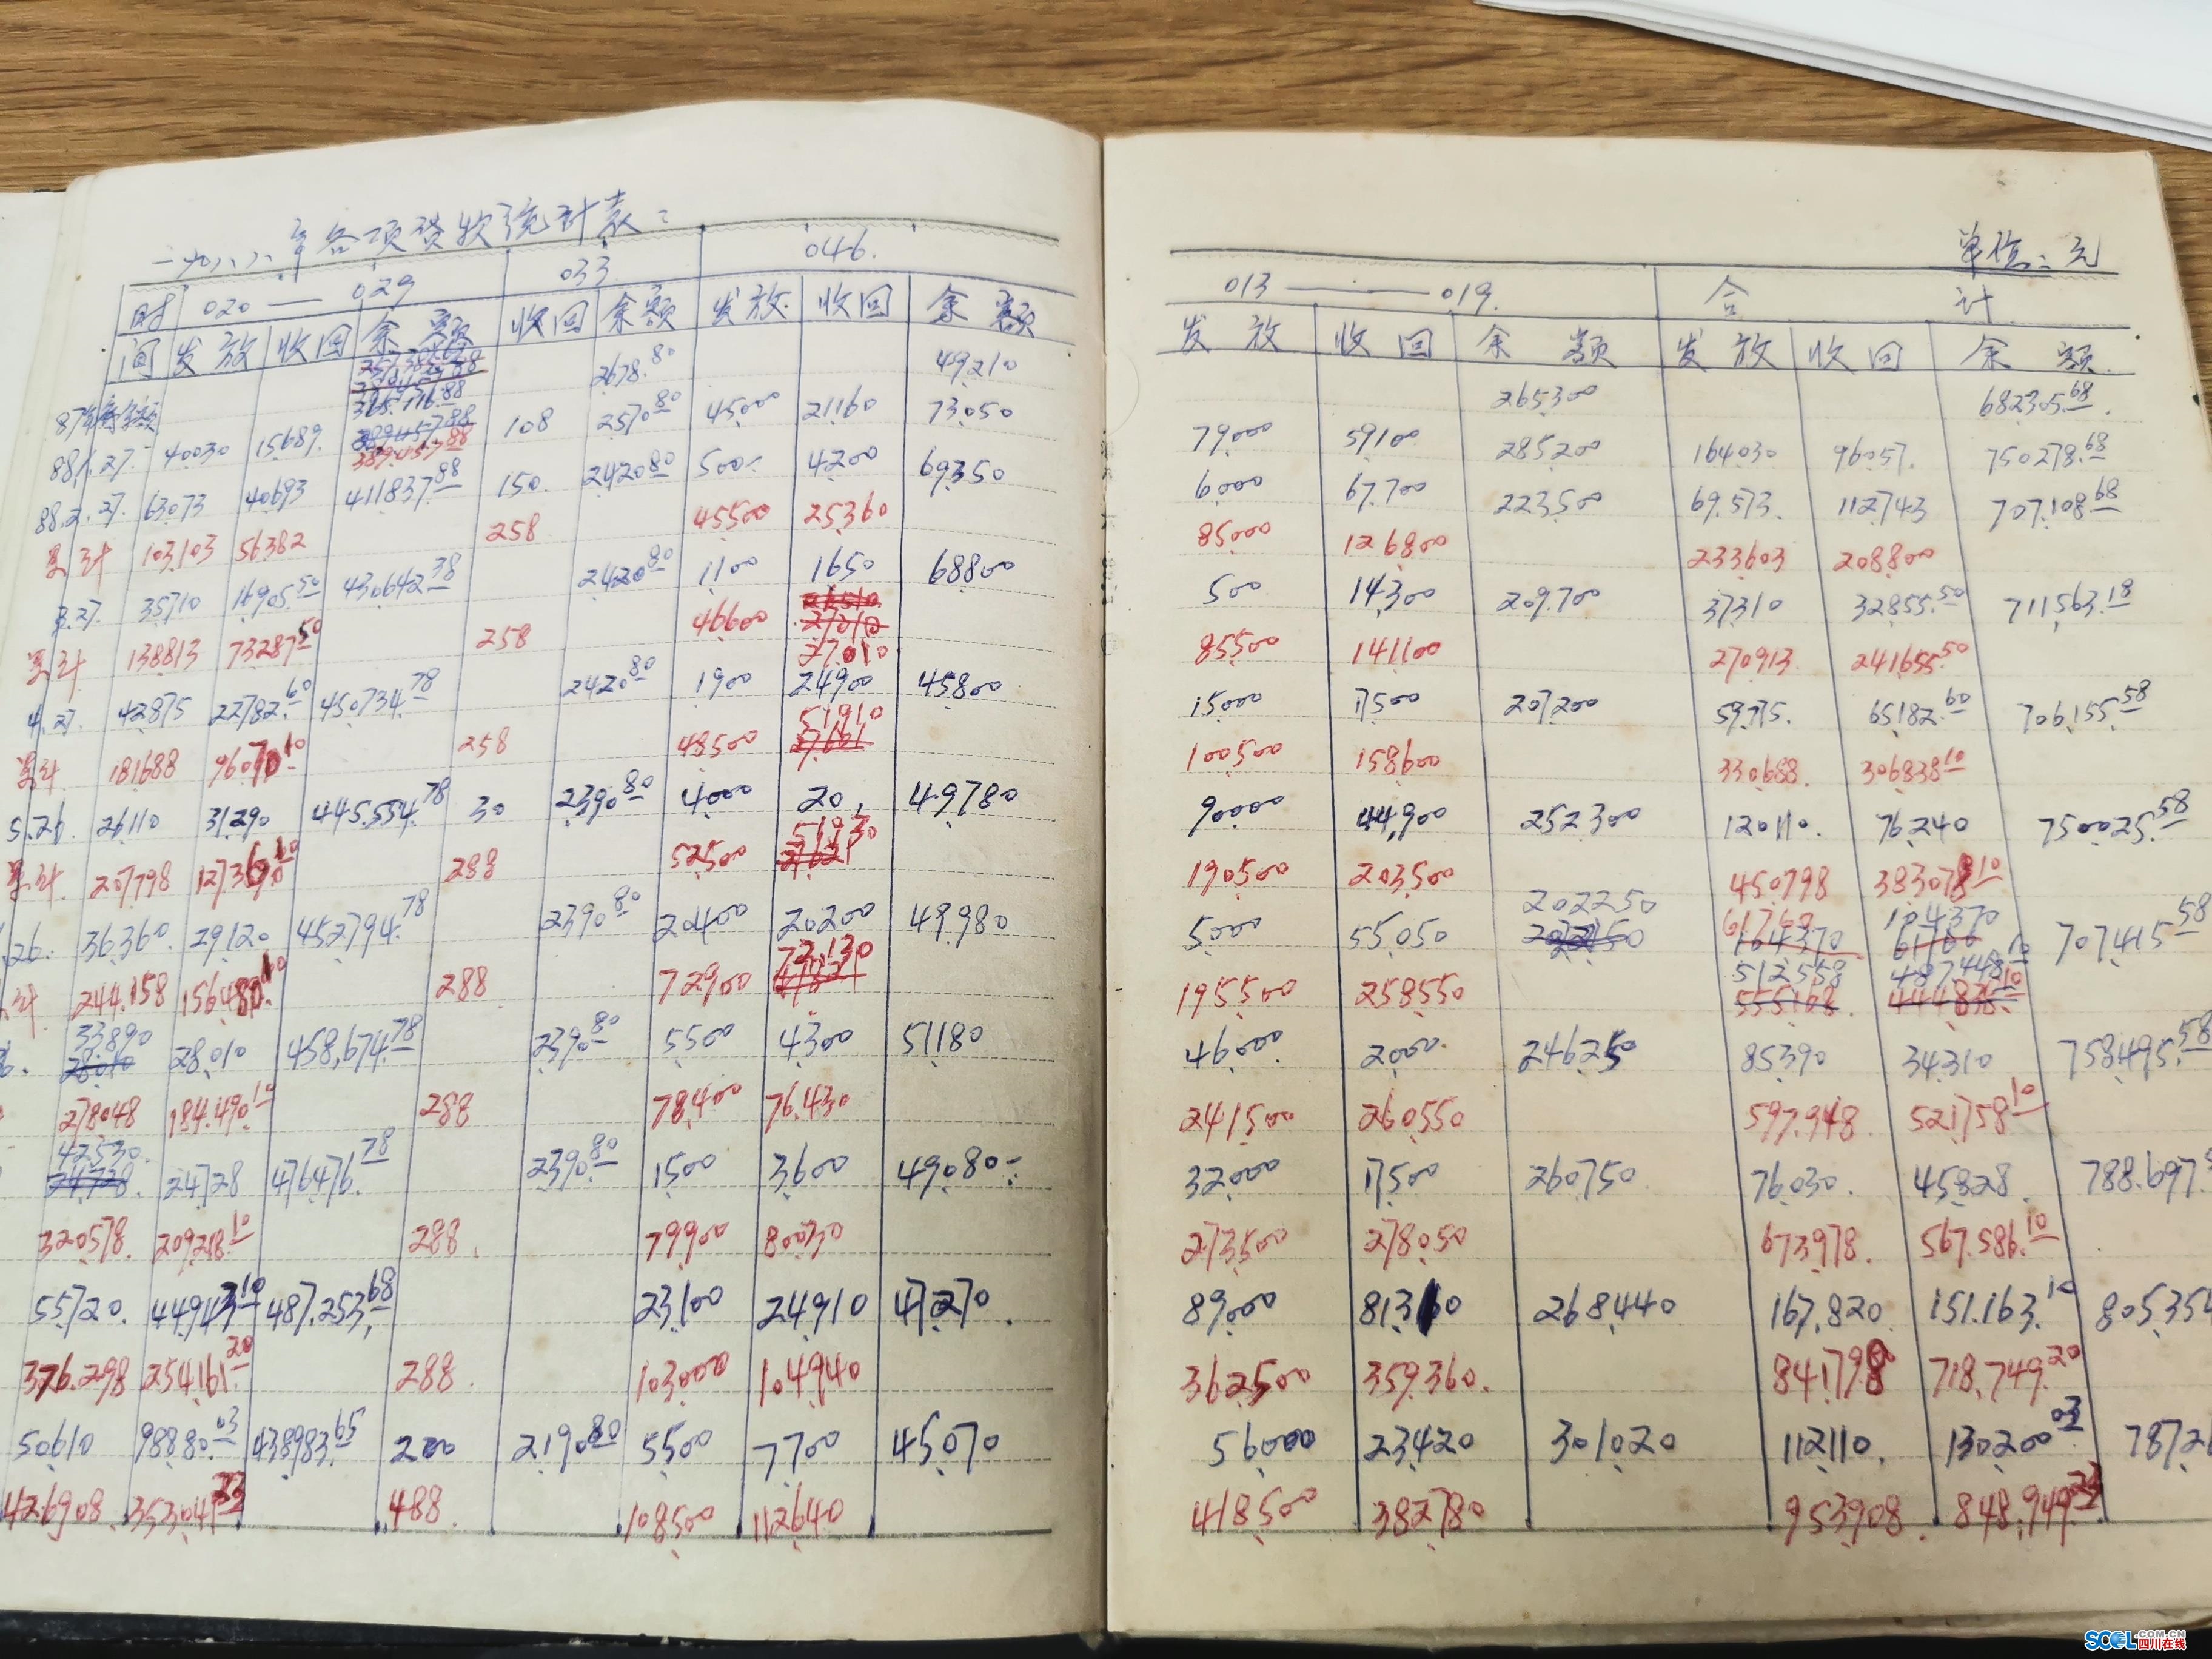 一九八八年各项贷款统计表：
时 020 — 029 033 046.
间 发放 收回 余额 收回 余额 发放 收回 余额
365.116.88 2678.80 49210
88.1.27. 40030 15689. 389457.88 108 2570.80 45000 21160 73050
88.2.27. 63073 40693 411837.88 150. 2420.80 500 4200 69350
累计 103103 56382 258 45500 25360
3.27. 35710 16905.50 430642.38 2420.80 1100 1650 68800
累计 138813 73287.50 258 46600 27010
4.27. 42875 22782.60 450734.78 2420.80 1900 24900 45800
累计 181688 96070.10 258 48500 51910
5.26. 26110 31290 445.554.78 30 2390.80 4000 20, 49780
累计 207798 127360.10 288 52500 51930
.26. 36360. 29120 452794.78 2390.80 20400 20200 49.980
计 244.158 156480.10 288 72900 72.130
33890 28.010 458,674.78 2390.80 5500 4300 51180
278048 184.490.10 288 78400 76.430
42530. 24728 476476.78 2390.80 1500 3600 49080-
320578. 209218.10 288. 79900 80030
55720. 44943.10 487.253.68 23100 24910 47270.
376.298 254161.20 288. 103000 104940
50610 98880.03 438983.65 200 2190.80 5500 7700 45070
426908. 353041.23 488. 108500 112640
单位：元
013 — 019. 合计
发放 收回 余额 发放 收回 余额
265300 682305.68.
79000 59100 285200 164030 96057. 750278.68
6000 67.700 223500 69.573. 112743 707.108.68
85000 126800 233603 208800
500 14300 209.700 37310 32855.50 711563.18
85500 141100 270913. 241655.50
15000 17500 207200 59775. 65182.60 706.155.58
100500 158600 330688. 306838.10
90000 44,900 252300 120110. 76240 750025.58
190500 203500 450798 383078.10
5000 55050 202250 61760 104370 707415.58
195500 258550 512558 487448.10
46000 2000 246250 85390 34310 758495.58
241500 260550 597.948 521758.10
32000 17500 260750 76030. 45828. 788.697.
273500 278050 673978. 567.586.10
89000 81360 268440 167.820 151.163.10 805354
362500 359360. 841798 718.749.20
56000 23420 301020 112110. 130200.03 7872
418500 382780 953908. 848.949.23
SCOL.COM.CN
四川在线